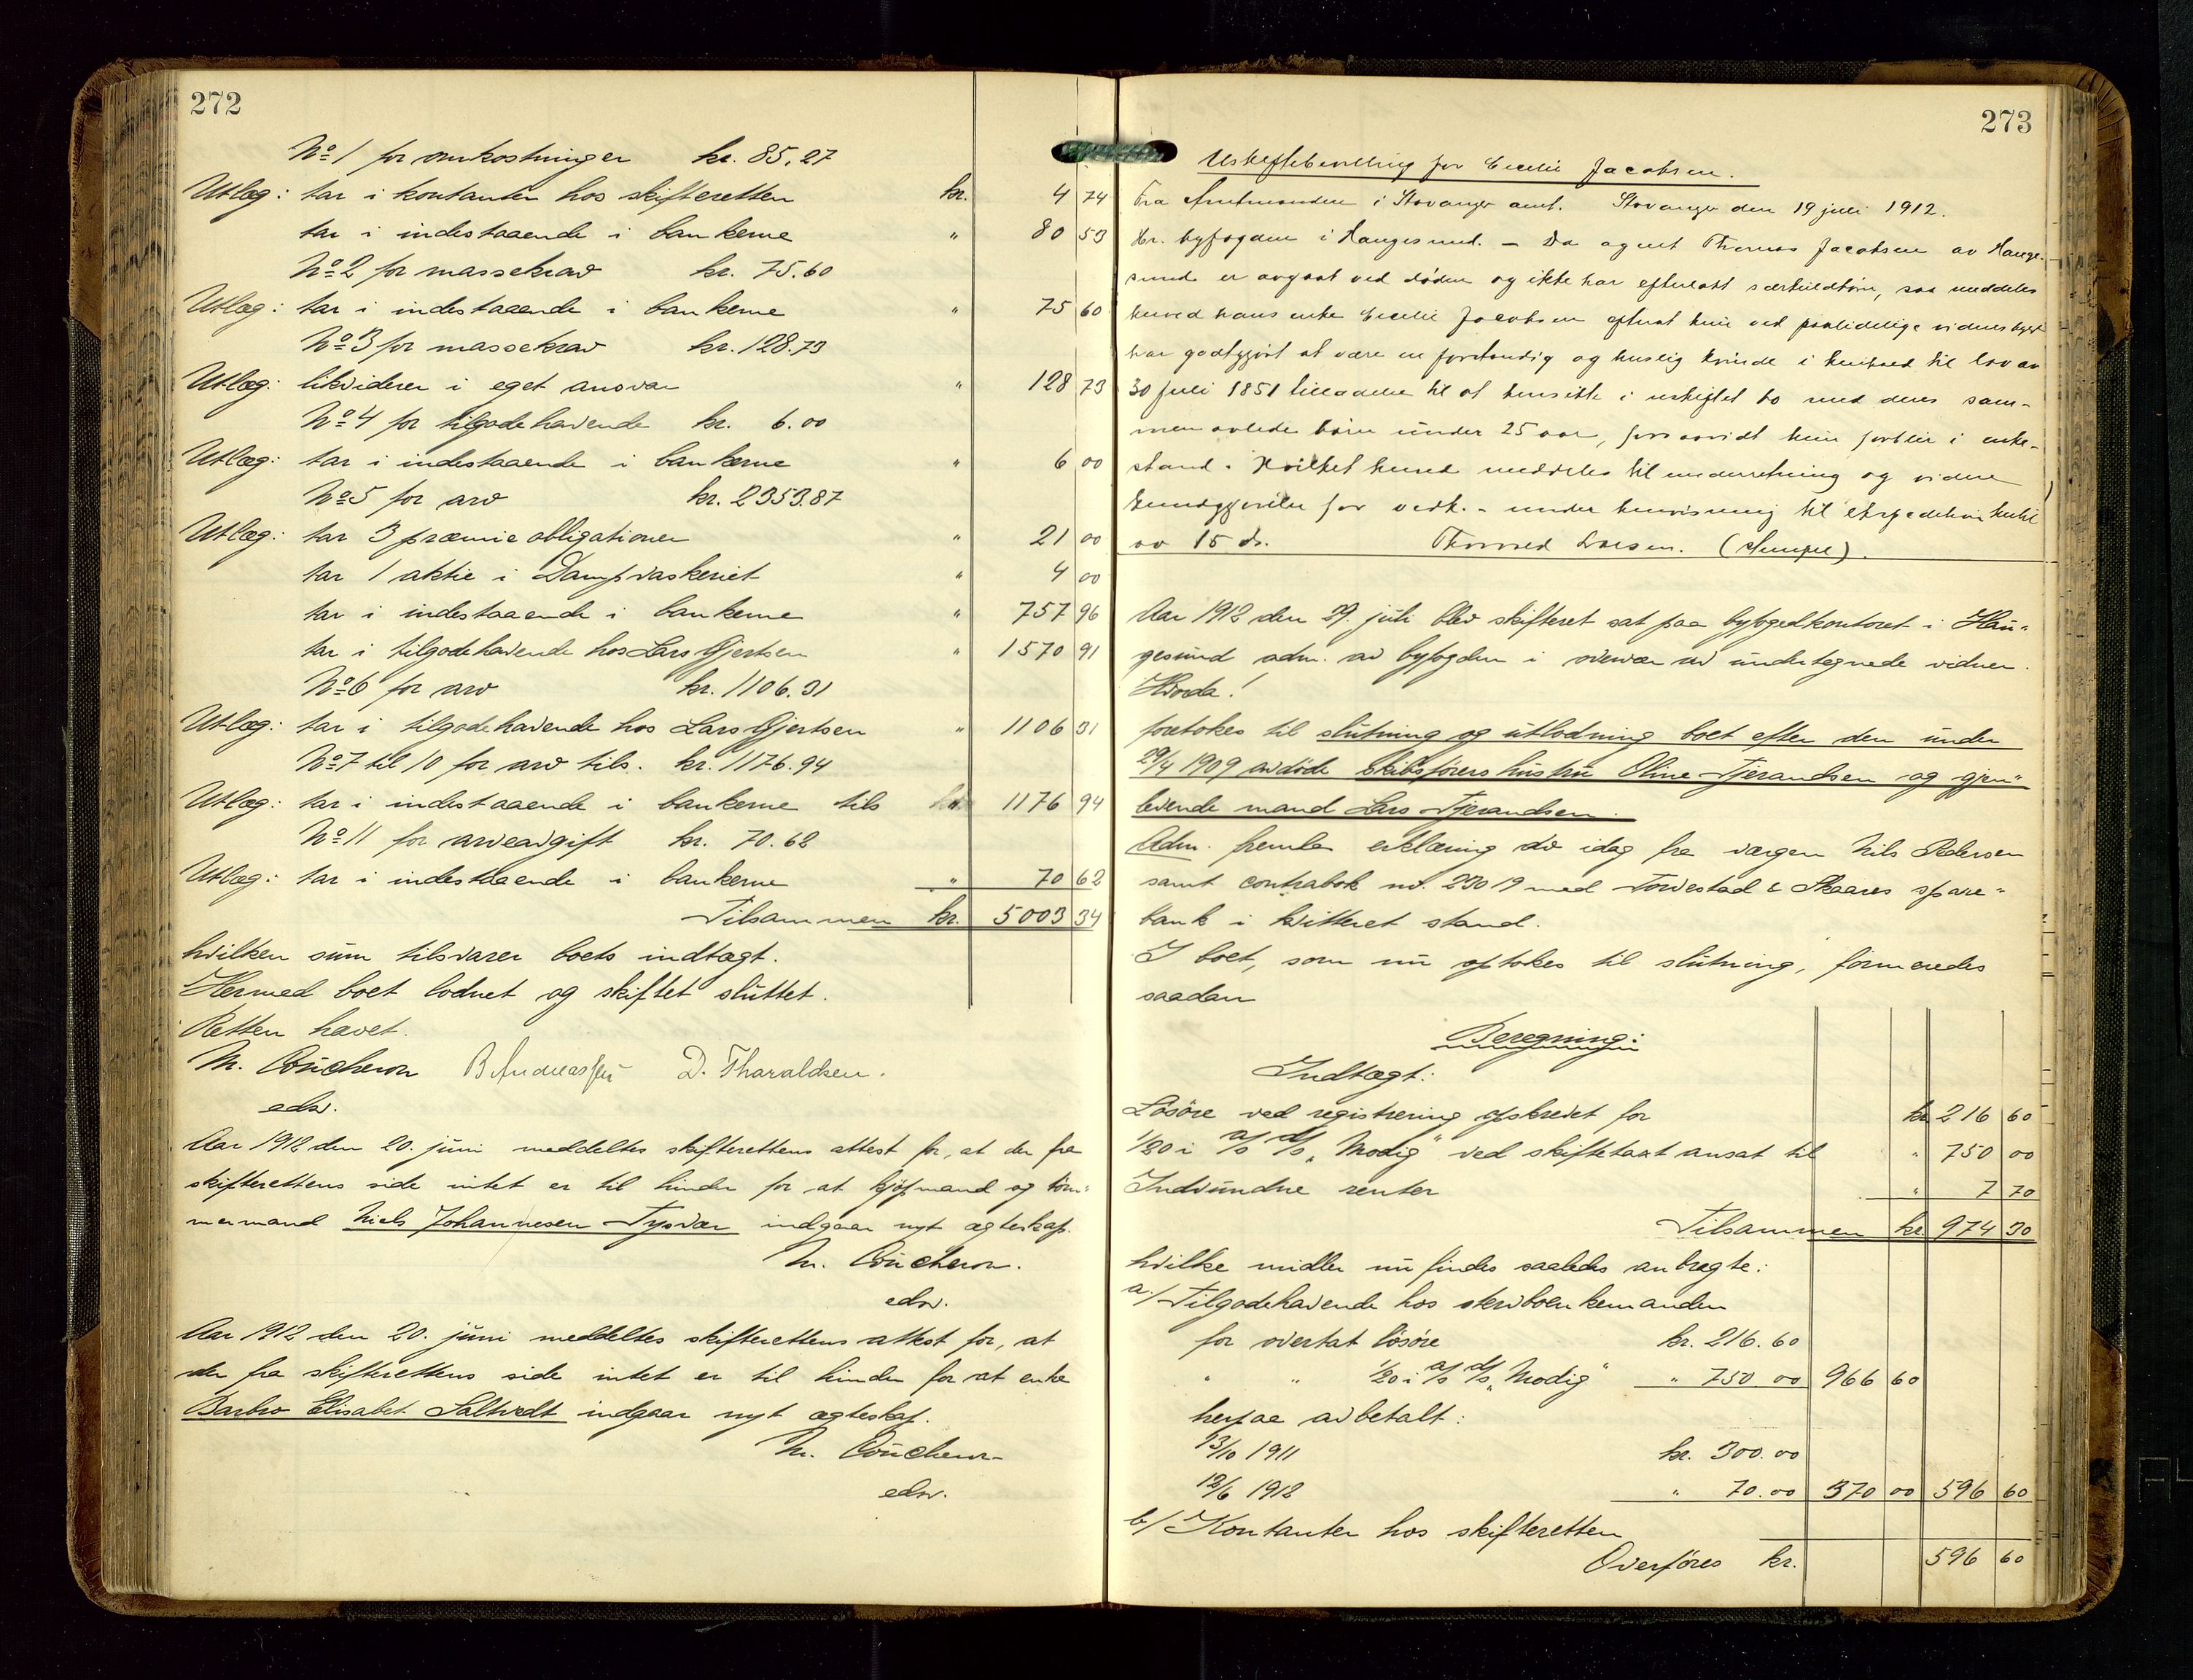 272
No 1 for omkostninger kr. 85,27
Utlæg: tar i kontanter hos skifteretten kr. 4 74
tar i indestaaende i bankerne " 80 53
No 2 for massekrav kr. 75.60
Utlæg: tar i indestaaende i bankerne " 75 60
No 3 for massekrav kr. 128.73
Utlæg: likviderer i eget ansvar " 128 73
No 4 for tilgodehavende kr. 6.00
Utlæg: tar i indestaaende i bankerne " 6 00
No 5 for arv kr. 2353.87
Utlæg: tar 3 præmieobligationer " 21 00
tar 1 aktie i Dampvaskeriet " 4 00
tar i indestaaende i bankerne " 757 96
tar i tilgodehavende hos Lars Gjertsen " 1570 91
No 6 for arv kr. 1106.31
Utlæg: tar i tilgodehavende hos Lars Gjertsen " 1106 31
No 7 til 10 for arv tils. kr. 1176.94
Utlæg: tar i indestaaende i bankerne tils " 1176 94
No 11 for arveavgift kr. 70.62
Utlæg: tar i indestaaende i bankerne " 70 62
Tilsammen kr. 5003 34
hvilken sum tilsvarer boets indtægt.
Hermed boet lodnet og skiftet sluttet.
Retten hævet.
M. Coucheron B. Andreassen D. Tharaldsen.
edsv.
Aar 1912 den 20. juni meddeltes skifterettens attest for, at der fra
skifterettens side intet er til hinder for at kjøpmand og töm-
mermand Niels Johannesen Tysvær indgaar nyt ægteskap.
M. Coucheron.
edsv.
Aar 1912 den 20. juni meddeltes skifterettens attest for, at
der fra skifterettens side intet er til hinder for at enke
Barbro Elisabet Saltvedt indgaar nyt ægteskap.
M. Coucheron
edsv.
273
Uskiftebevilling for Cecilie Jacobsen.
Fra Amtmanden i Stavanger amt. Stavanger den 19 juli 1912.
Hr. byfogden i Haugesund. – Da agent Thomas Jacobsen av Hauge-
sund er avgaat ved døden og ikke har efterlatt særkuldbörn, saa meddeles
herved hans enke Cecilie Jacobsen efterat hun ved paalidelige vidnesbyrd
har godtgjort at være en forstandig og huslig kvinde i henhold til lov av
30 juli 1851 tilladelse til at hensitte i uskiftet bo med deres sam-
menavlede börn under 25 aar, forsaavidt hun forblir i enke-
stand. Hvilket herved meddeles til underretning og videre
bekjendtgjørelse for vedk. - under henvisning til ekspedition hertil
av 15 ds. Thorvald Larsen. (stempel).
Aar 1912 den 29. juli blev skifteret sat paa byfogedkontoret i Hau-
gesund adm. av byfogden i overvær av undertegnede vidner.
Hvorda!
foretokes til slutning og utlodning boet efter den under
29/4 1909 avdöde skibsförers hustru Oline Tjerandsen og gjen-
levende mand Lars Tjerandsen.
Adm. fremla erklæring av idag fra værgen Nils Pedersen
samt contrabok nr. 23019 med Torvestad & Skaares spare-
bank i kvitteret stand.
I boet, som nu optokes til slutning, formeredes
saadan
Beregning:
Indtægt:
Lösöre ved registrering opskrevet for kr 216 60
1/20 i a/s d/s "Modig" ved skiftetaxt ansat til " 750 00
Indvundne renter " 7 70
Tilsammen kr 974 30
hvilke midler nu findes saaledes anbragte:
a/ Tilgodehavende hos skervboenkemanden
for overtat lösöre kr. 216.60
" " 1/20 i a/s d/s "Modig" " 750 00 966 60
herpaa avbetalt:
13/10 1911 kr. 300.00
12/6 1912 " 70.00 370 00 596 60
b/ Kontanter hos skifteretten
Overföres kr. 596 60